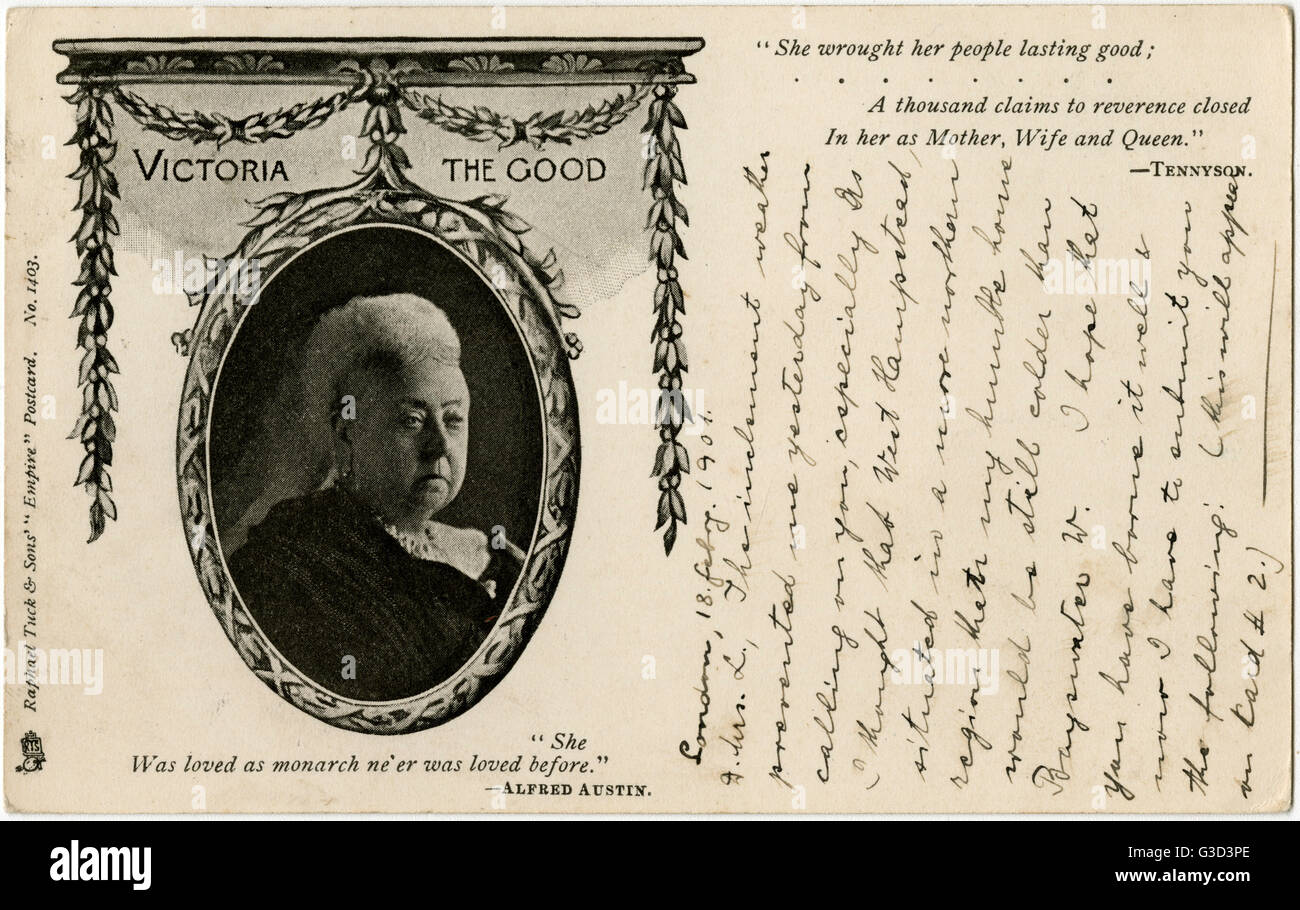 "She wrought her people lasting good;
. . . . . . . . . .
A thousand claims to reverence closed
In her as Mother, Wife and Queen."
—TENNYSON.
VICTORIA THE GOOD
"She
Was loved as monarch ne'er was loved before."
—ALFRED AUSTIN.
Raphael Tuck & Sons' "Empire" Postcard. No. 1403.
RTS
London, 18. febry. 1901.
Mrs. L., The inclement weather
prevented me yesterday from
calling on you, especially as
I thought that West Hampstead,
situated in a more northern
region than my humble home
would be still colder than
Bayswater W. I hope that
you have borne it well &
now I have to submit you
the following: (this will appear
on Card # 2.)
alamy
Image ID: G3D3PE
www.alamy.com